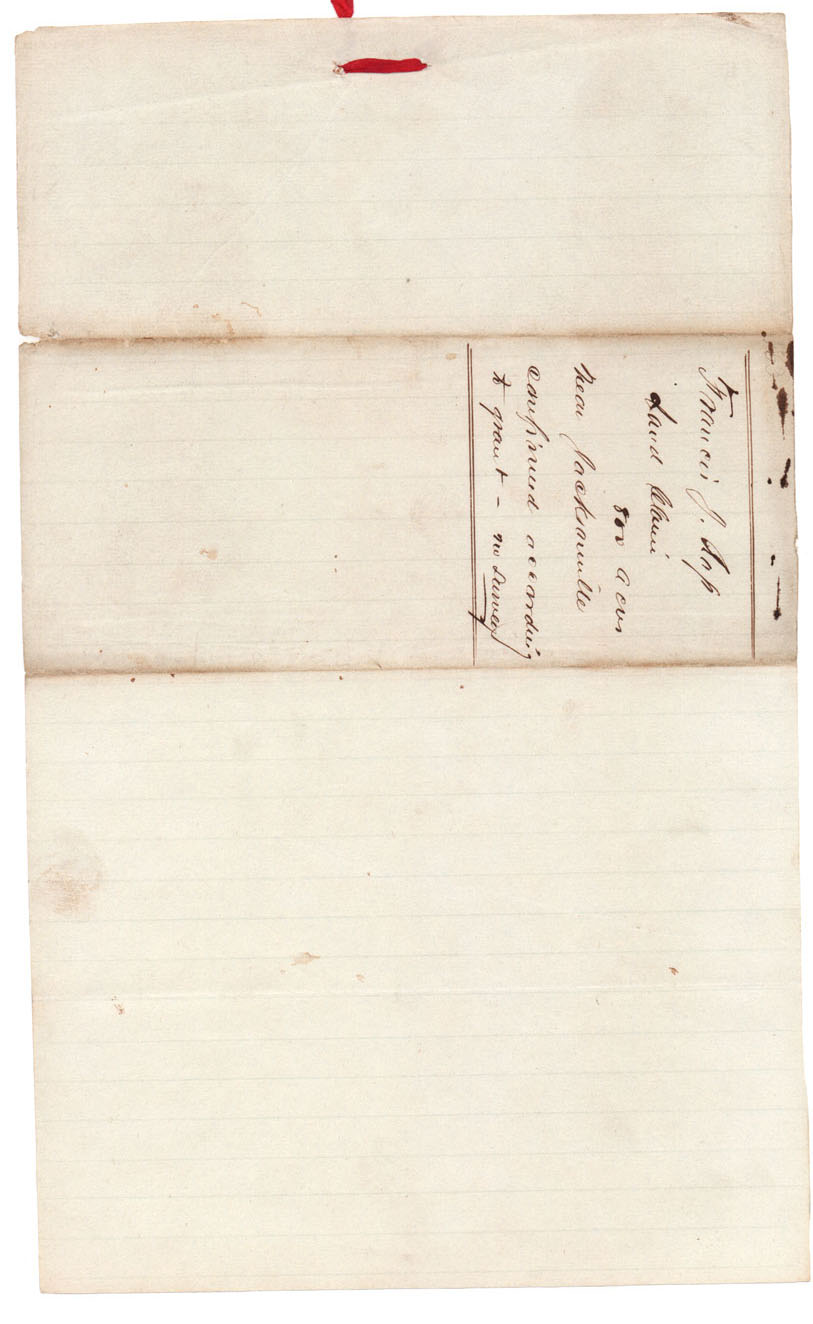 Francis J. Ross
Land Claim
800 Acres
Near Jacksonville
confirmed according
to grant - no Survey